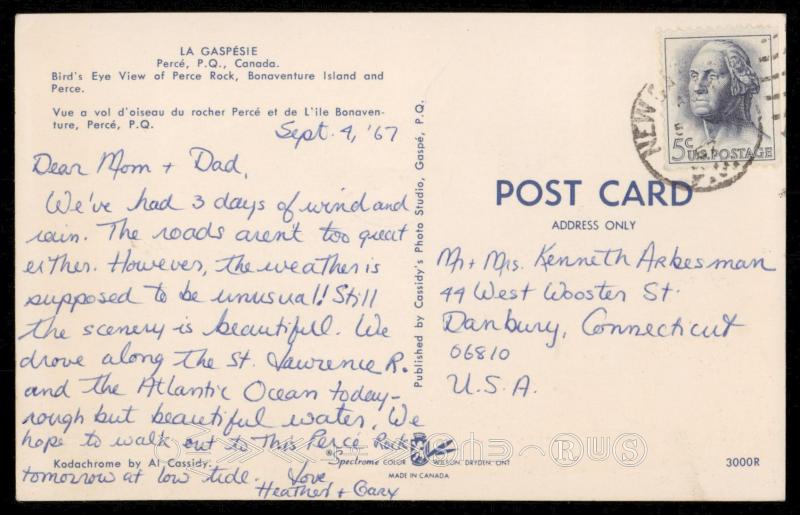 LA GASPÉSIE
Percé, P.Q., Canada.
Bird's Eye View of Perce Rock, Bonaventure Island and
Perce.
Vue a vol d'oiseau du rocher Percé et de L'ile Bonaven-
ture, Percé, P.Q.
Sept. 4, '67
Dear Mom + Dad,
We've had 3 days of wind and
rain. The roads aren't too great
either. However, the weather is
supposed to be unusual! Still
the scenery is beautiful. We
drove along the St. Lawrence R.
and the Atlantic Ocean today-
rough but beautiful water. We
hope to walk out to This Percé Rock
tomorrow at low tide. Love
Heather + Gary
Kodachrome by Al Cassidy.
Published by Cassidy's Photo Studio, Gaspé, P.Q.
Spectrome COLOR WILSON, DRYDEN, ONT
MADE IN CANADA
NEW
5c U.S. POSTAGE
POST CARD
ADDRESS ONLY
Mr + Mrs. Kenneth Arbesman
44 West Wooster St.
Danbury, Connecticut
06810
U.S.A.
3000R